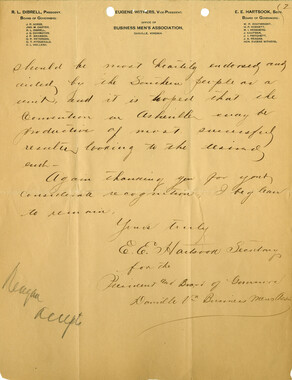 52
B. L. DIBRELL, PRESIDENT.
BOARD OF GOVERNORS.
EUGENE WITHERS, VICE-PRESIDENT.
E. E. HARTSOOK, SECY.
BOARD OF GOVERNORS.
OFFICE OF
BUSINESS MEN'S ASSOCIATION,
DANVILLE, VIRGINIA
should be most heartily endorsed and
aided by the Southern people as a
unit, and it is hoped that the
Convention in Asheville may be
productive of most successful
results, looking to the desired
end.
Again thanking you for your
considerate recognition, I beg leave
to remain.
Yours truly
E. E. Hartsook Secretary
for the
President and Board of Governors
Danville Va. Business Mens Assn